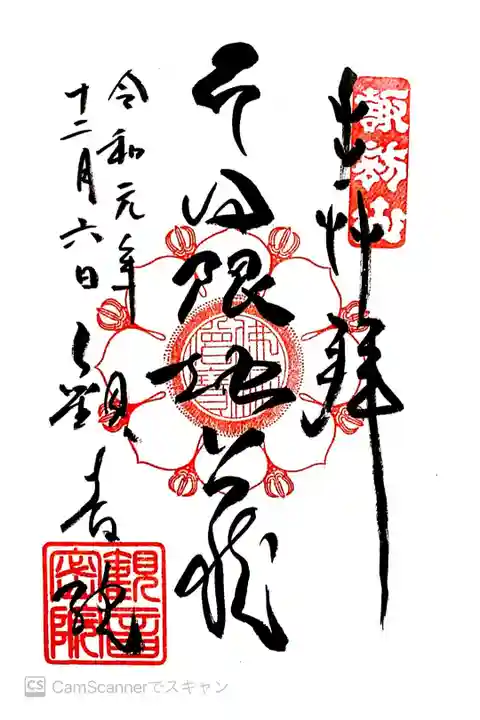 諏訪山
奉拝
日限地蔵
令和元年
十二月六日
観音院
仏法僧寶
観音密院
CS CamScannerでスキャン